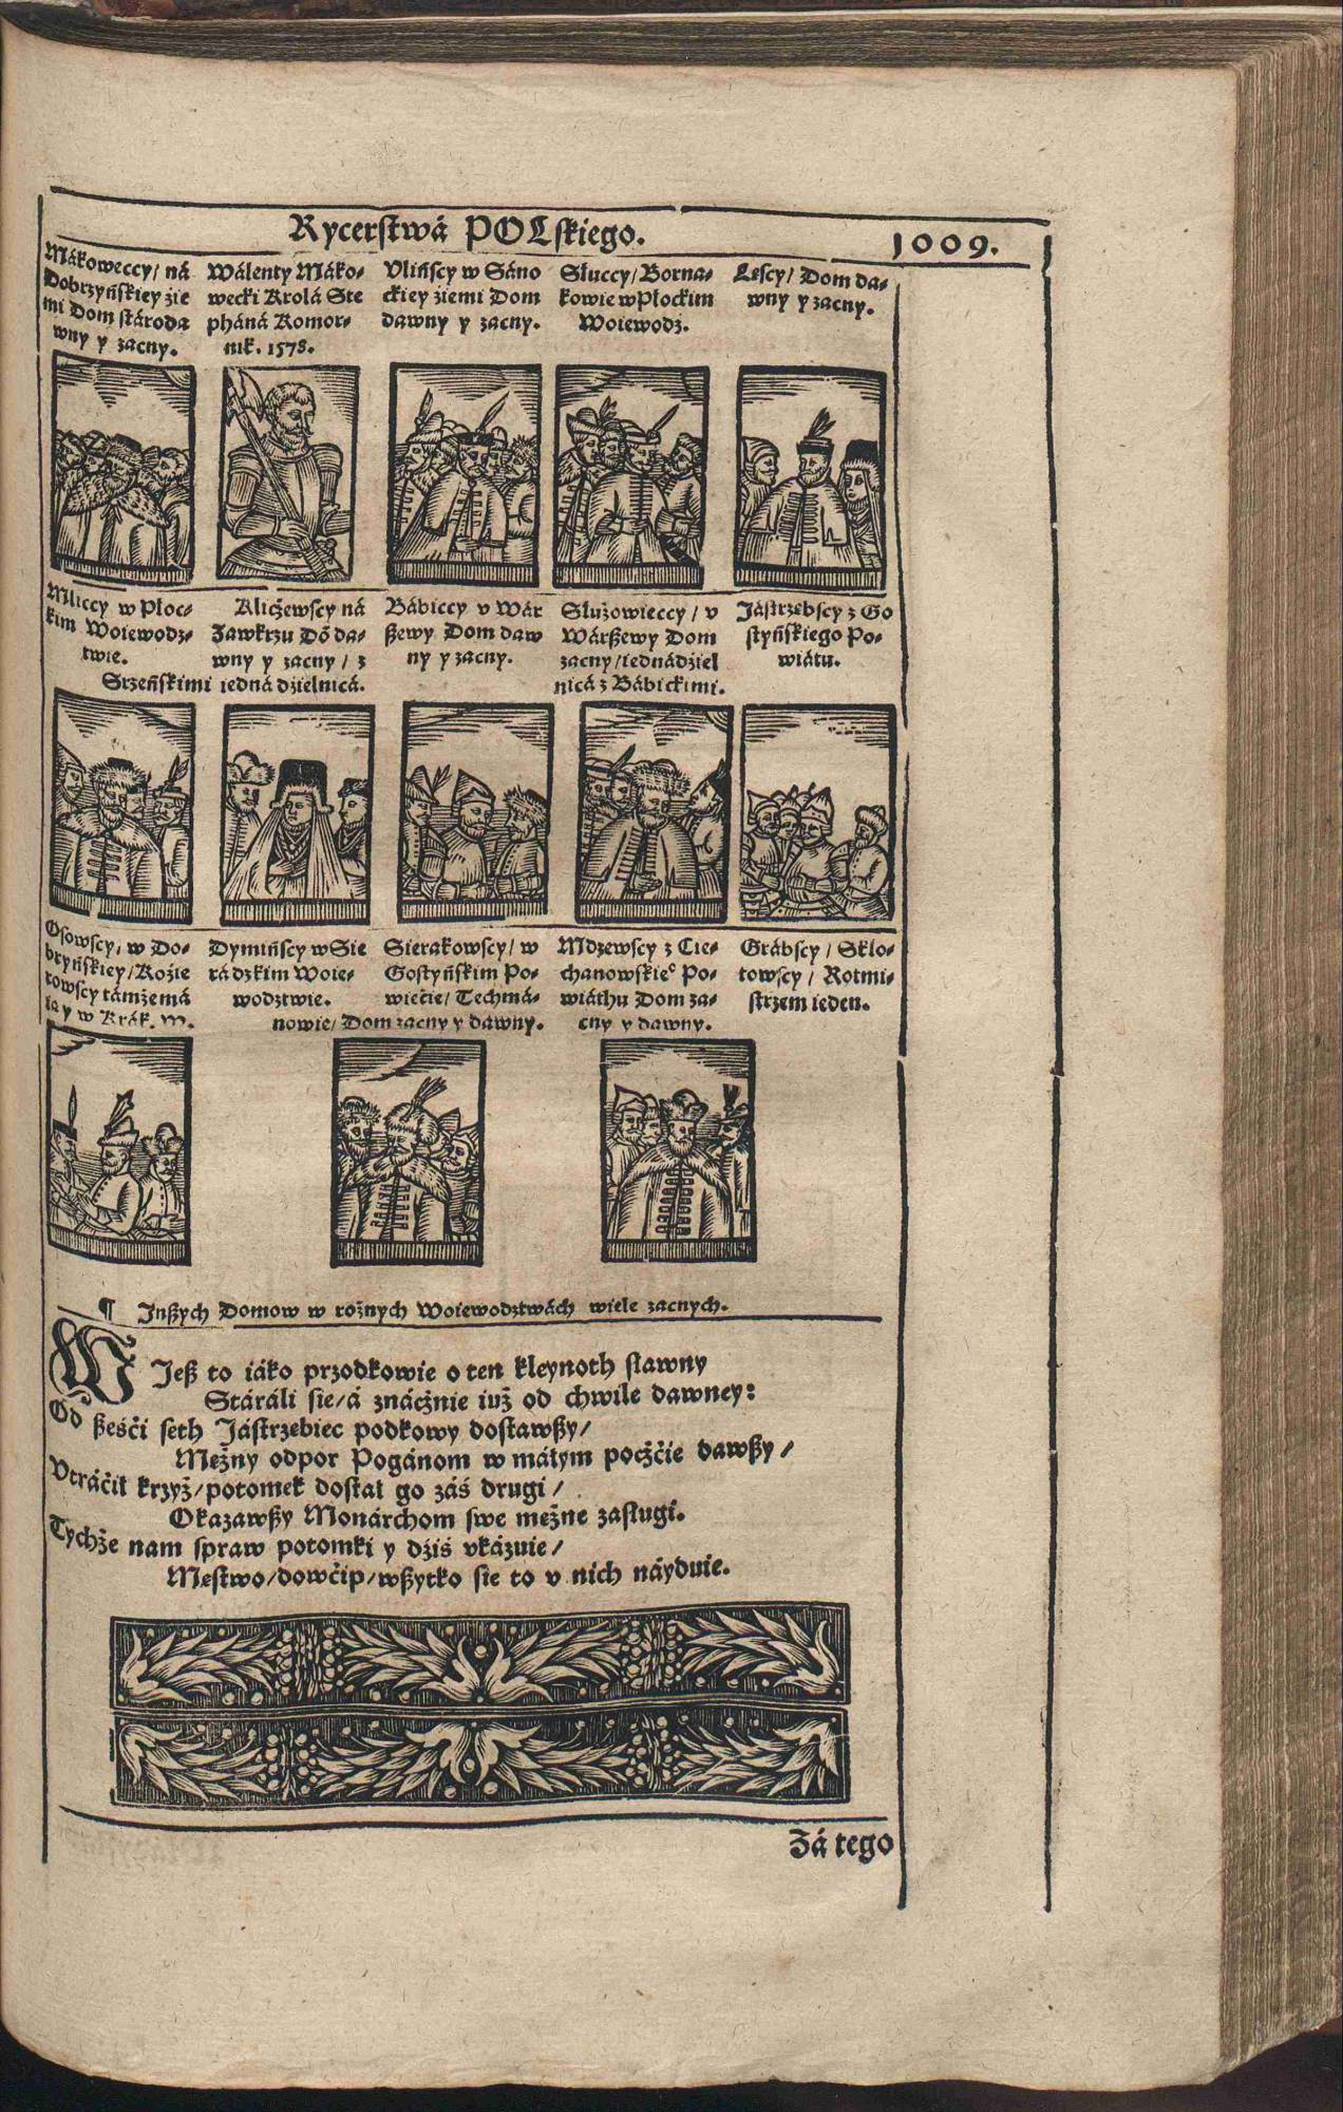 Rycerstwá POLskiego.
1009.
Mákoweccy / ná
Dobrzyńskiey źie
mi Dom stároda
wny y zacny.
Wálenty Máko-
wecki Krolá Ste
pháná Komor-
nik. 1578.
Vlińscy w Sáno
ckiey źiemi Dom
dawny y zacny.
Słuccy / Borna-
kowie w Płockim
Woiewodz.
Lescy / Dom da-
wny y zacny.
Mliccy w Płoc-
kim Woiewodz-
twie.
Kliczewscy ná
Zawkrzu Dō da-
wny y zacny / z
Srzeńskimi iedná dzielnicá.
Bábiccy v Wár
ßewy Dom daw
ny y zacny.
Służowieccy / v
Wárßewy Dom
zacny / iednádziel
nicá z Bábickimi.
Jástrzebscy z Go
styńskiego Po-
wiátu.
Osowscy, w Do-
bryńskiey / Kożie
rowscy támże má
ia y w Krák. m.
Dymińscy w Sie
rádzkim Woie-
wodztwie.
Sierakowscy / w
Gostyńskim Po-
wiećie / Techmá-
nowie / Dom zacny y dawny.
Mdzewscy z Cie-
chanowskieº Po-
wiáthu Dom za-
cny y dawny.
Grábscy / Sklo-
towscy / Rotmi-
strzem ieden.
¶ Inßych Domow w rożnych Woiewodztwách wiele zacnych.
WJeß to iáko przodkowie o ten kleynoth sławny
Stáráli sie / á znácżnie iuż od chwile dawney:
Od ßeśći seth Jástrzebiec podkowy dostawßy /
Mężny odpor Pogánom w máłym pocżćie dawßy /
Vtráćił krzyż / potomek dostał go záś drugi /
Okazawßy Monárchom swe mężne zasługi.
Tychże nam spraw potomki y dźiś vkázuie /
Męstwo / dowćip / wßytko sie to v nich náyduie.
Zá tego